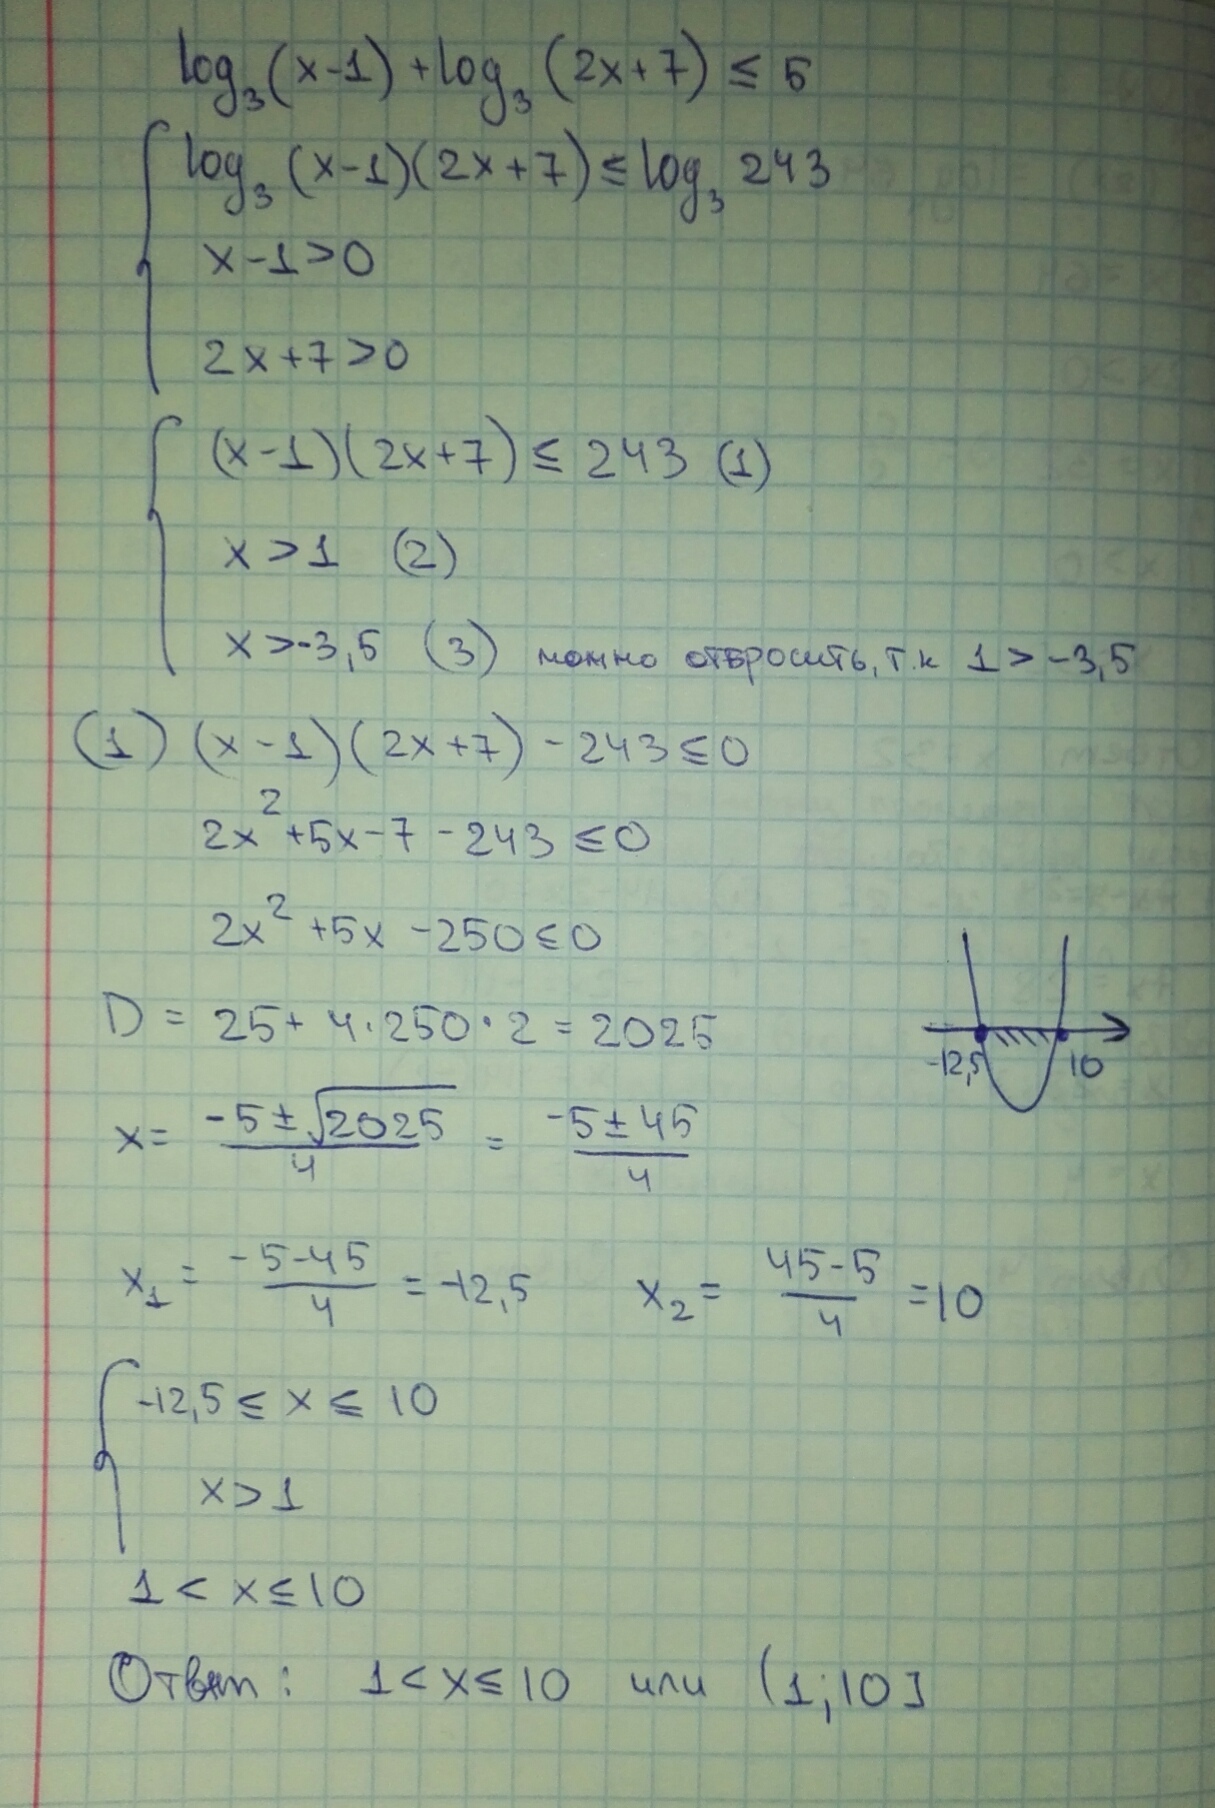 log₃(x-1)+log₃(2x+7)≤5
log₃(x-1)(2x+7)≤log₃ 243
x-1>0
2x+7>0
(x-1)(2x+7)≤243 (1)
x>1 (2)
x>-3,5 (3) можно отбросить, т.к 1>-3,5
(1) (x-1)(2x+7)-243≤0
2x²+5x-7-243≤0
2x²+5x-250≤0
D=25+4·250·2=2025
-12,5 10
x=(-5±√2025)/4=(-5±45)/4
x₁=(-5-45)/4=-12,5 x₂=(45-5)/4=10
-12,5≤x≤10
x>1
1<x≤10
Ответ: 1<x≤10 или (1;10]